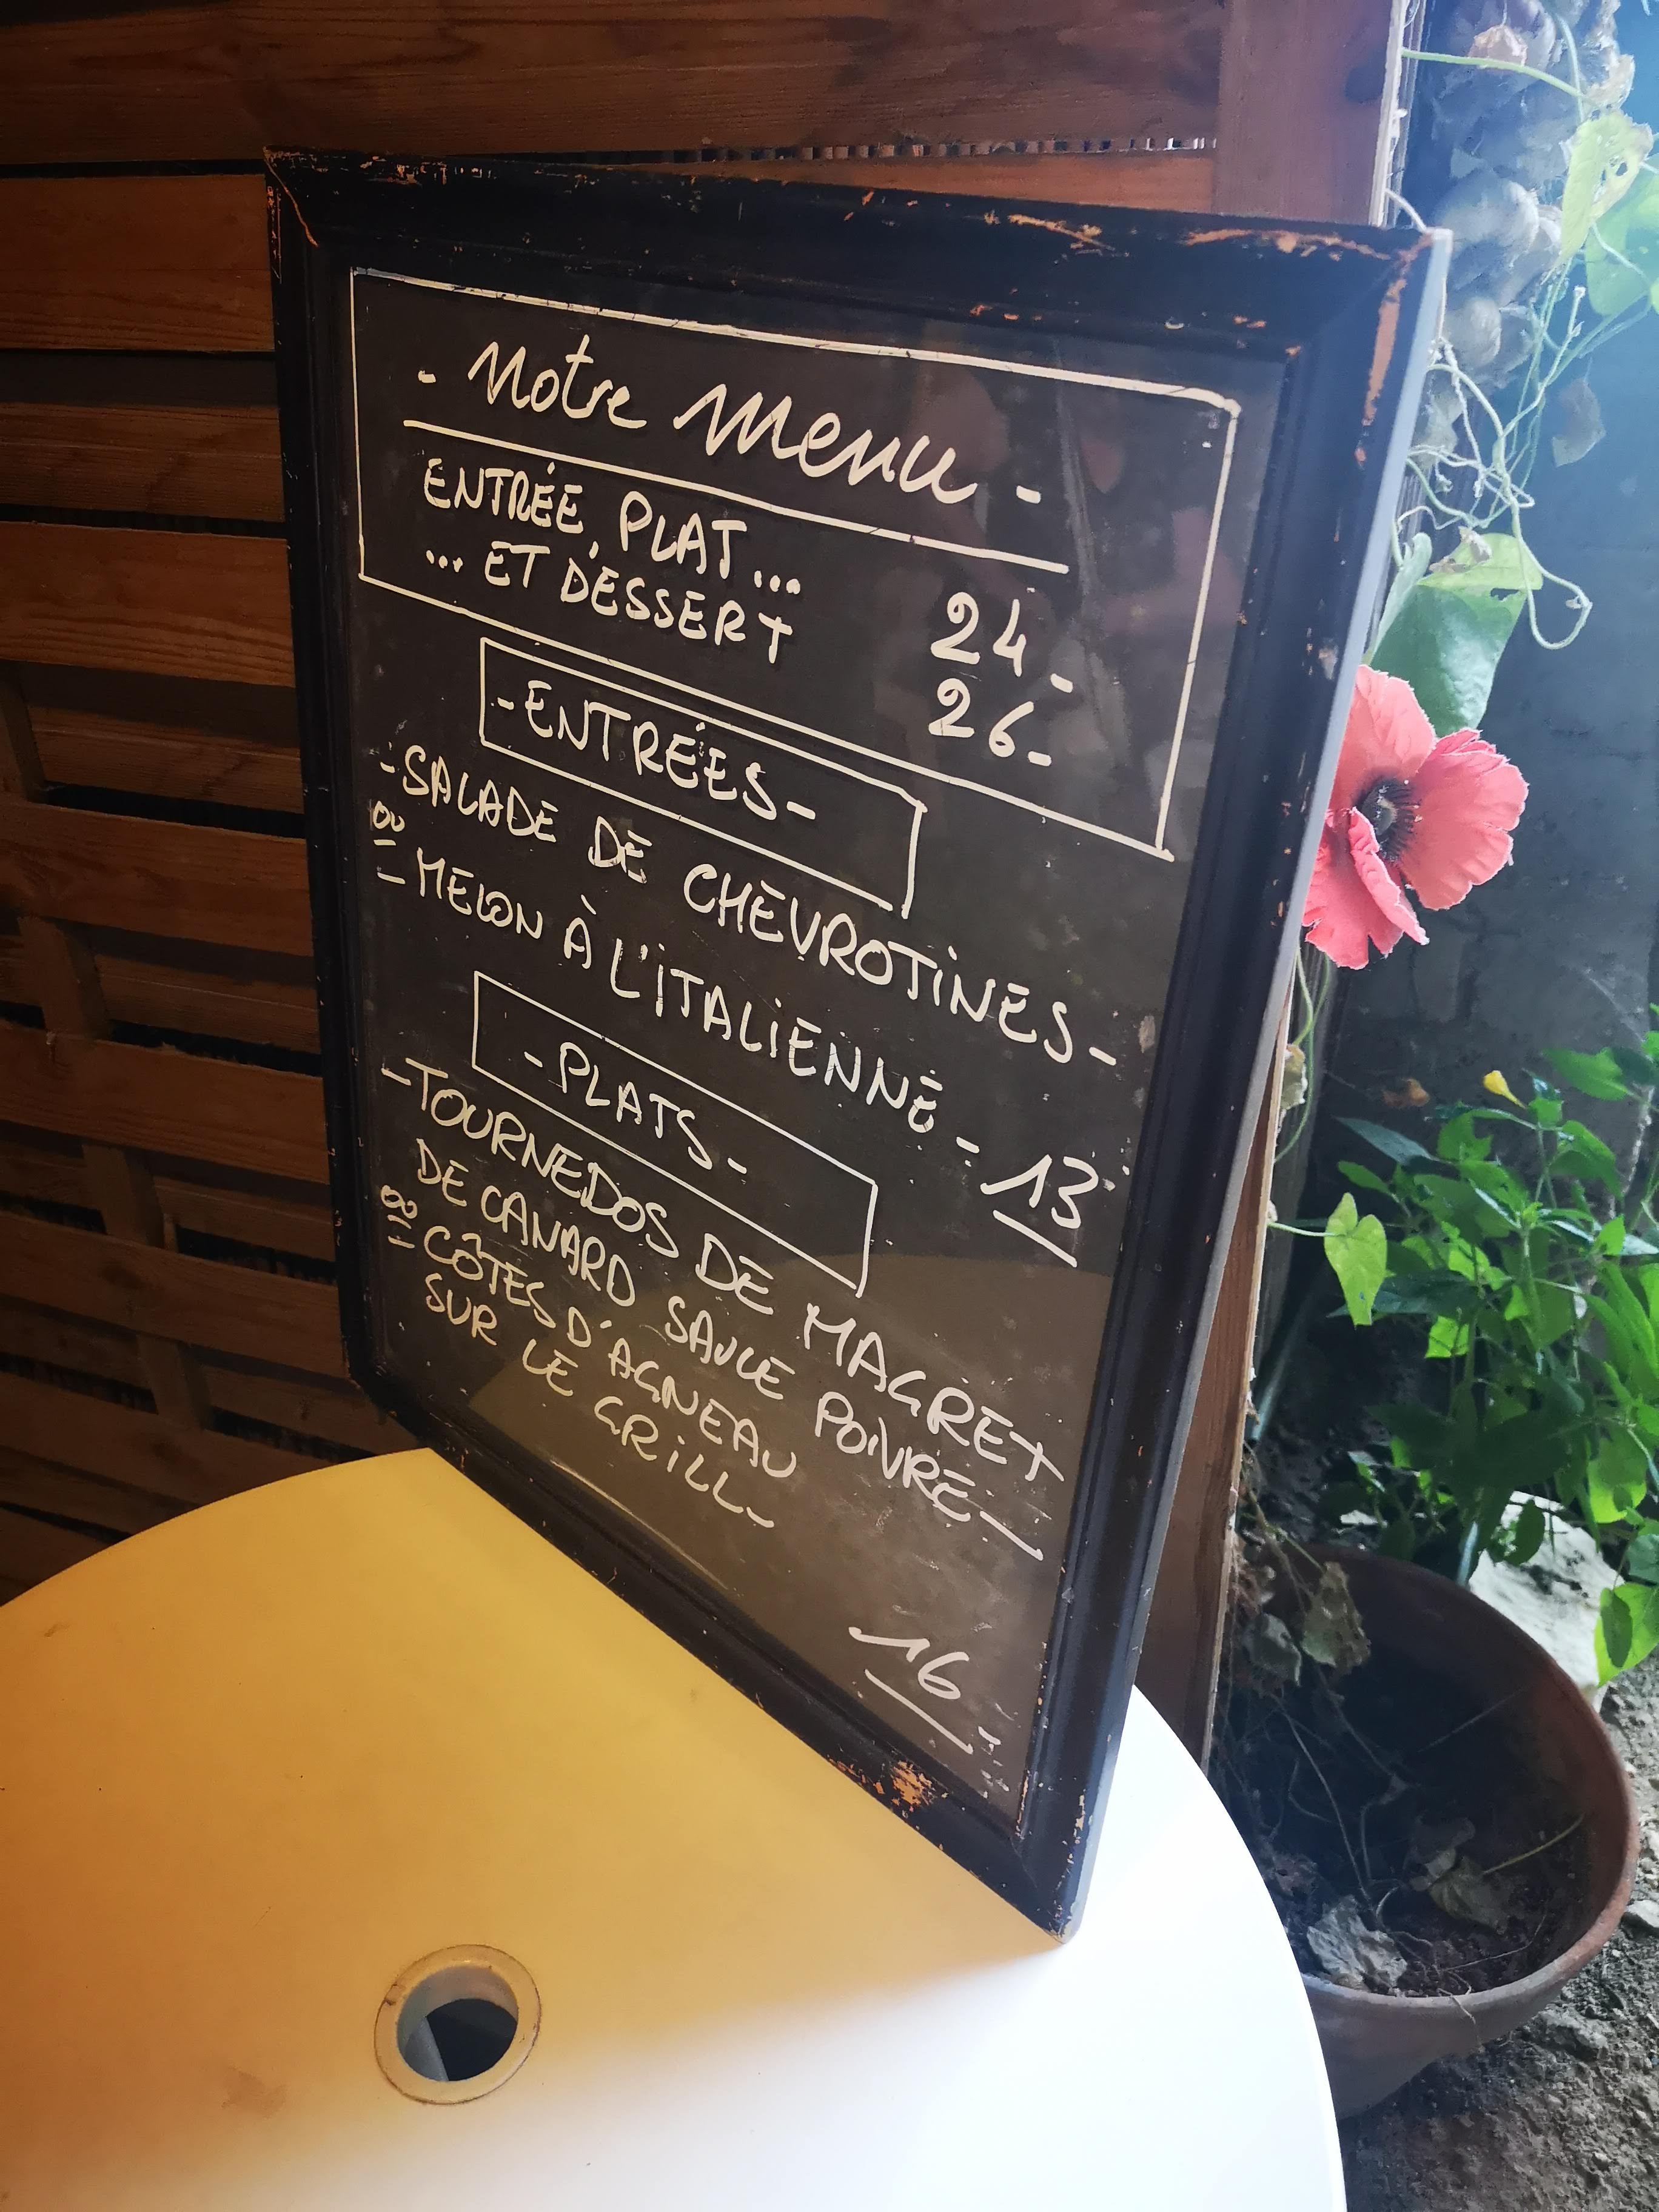 - Notre Menu -
ENTRÉE, PLAT... 24-
... ET DÉSSERT 26-
- ENTRÉES -
- SALADE DE CHEVROTINES -
ou
- MELON À L'ITALIENNE - 13
- PLATS -
- TOURNEDOS DE MAGRET
DE CANARD SAUCE POIVRE -
ou
- CÔTES D'AGNEAU
SUR LE GRILL -
16